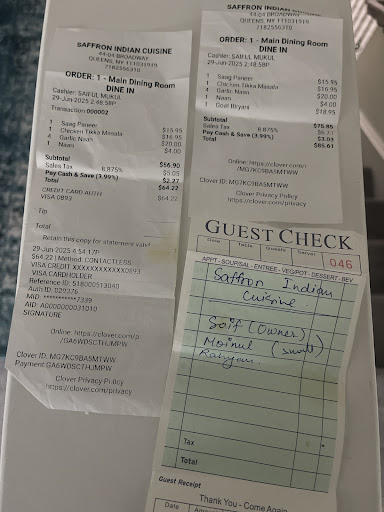 SAFFRON INDIAN CUISINE
44-04 BROADWAY
QUEENS, NY 111031919
7182556310
ORDER: 1 - Main Dining Room
DINE IN
Cashier: SAIFUL MUKUL
29-Jun-2025 2:48:58P
Transaction 000002
1 Saag Paneer $15.95
1 Chicken Tikka Masala $16.95
4 Garlic Naan $20.00
1 Naan $4.00
Subtotal $56.90
Sales Tax 8.875% $5.05
Pay Cash & Save (3.99%) $2.27
Total $64.22
CREDIT CARD AUTH $64.22
VISA 0893
Tip
Total
Retain this copy for statement validation
29-Jun-2025 4:54:17P
$64.22 | Method: CONTACTLESS
VISA CREDIT XXXXXXXXXXXX0893
VISA CARDHOLDER
Reference ID: 518000513040
Auth ID: 029376
MID: ********7339
AID: A0000000031010
SIGNATURE
Online: https://clover.com/p
/GA6WDSCTHJMPW
Clover ID: MG7KC9BA5MTWW
Payment GA6WDSCTHJMPW
Clover Privacy Policy
https://clover.com/privacy
SAFFRON INDIAN CUISINE
44-04 BROADWAY
QUEENS, NY 111031919
7182556310
ORDER: 1 - Main Dining Room
DINE IN
Cashier: SAIFUL MUKUL
29-Jun-2025 2:48:58P
1 Saag Paneer $15.95
1 Chicken Tikka Masala $16.95
4 Garlic Naan $20.00
1 Naan $4.00
1 Goat Biryani $18.95
Subtotal $75.85
Sales Tax 8.875% $6.73
Pay Cash & Save (3.99%) $3.03
Total $85.61
Online: https://clover.com/r
/MG7KC9BA5MTWW
Clover ID: MG7KC9BA5MTWW
Clover Privacy Policy
https://clover.com/privacy
GUEST CHECK
Date Table Guests Server 046
APPT - SOUP/SAL - ENTREE - VEG/POT - DESSERT - BEV
Saffron Indian
Cuisine
Saif (Owner)
Moinul
Tax
Total
Guest Receipt
Thank You - Come Again
Date